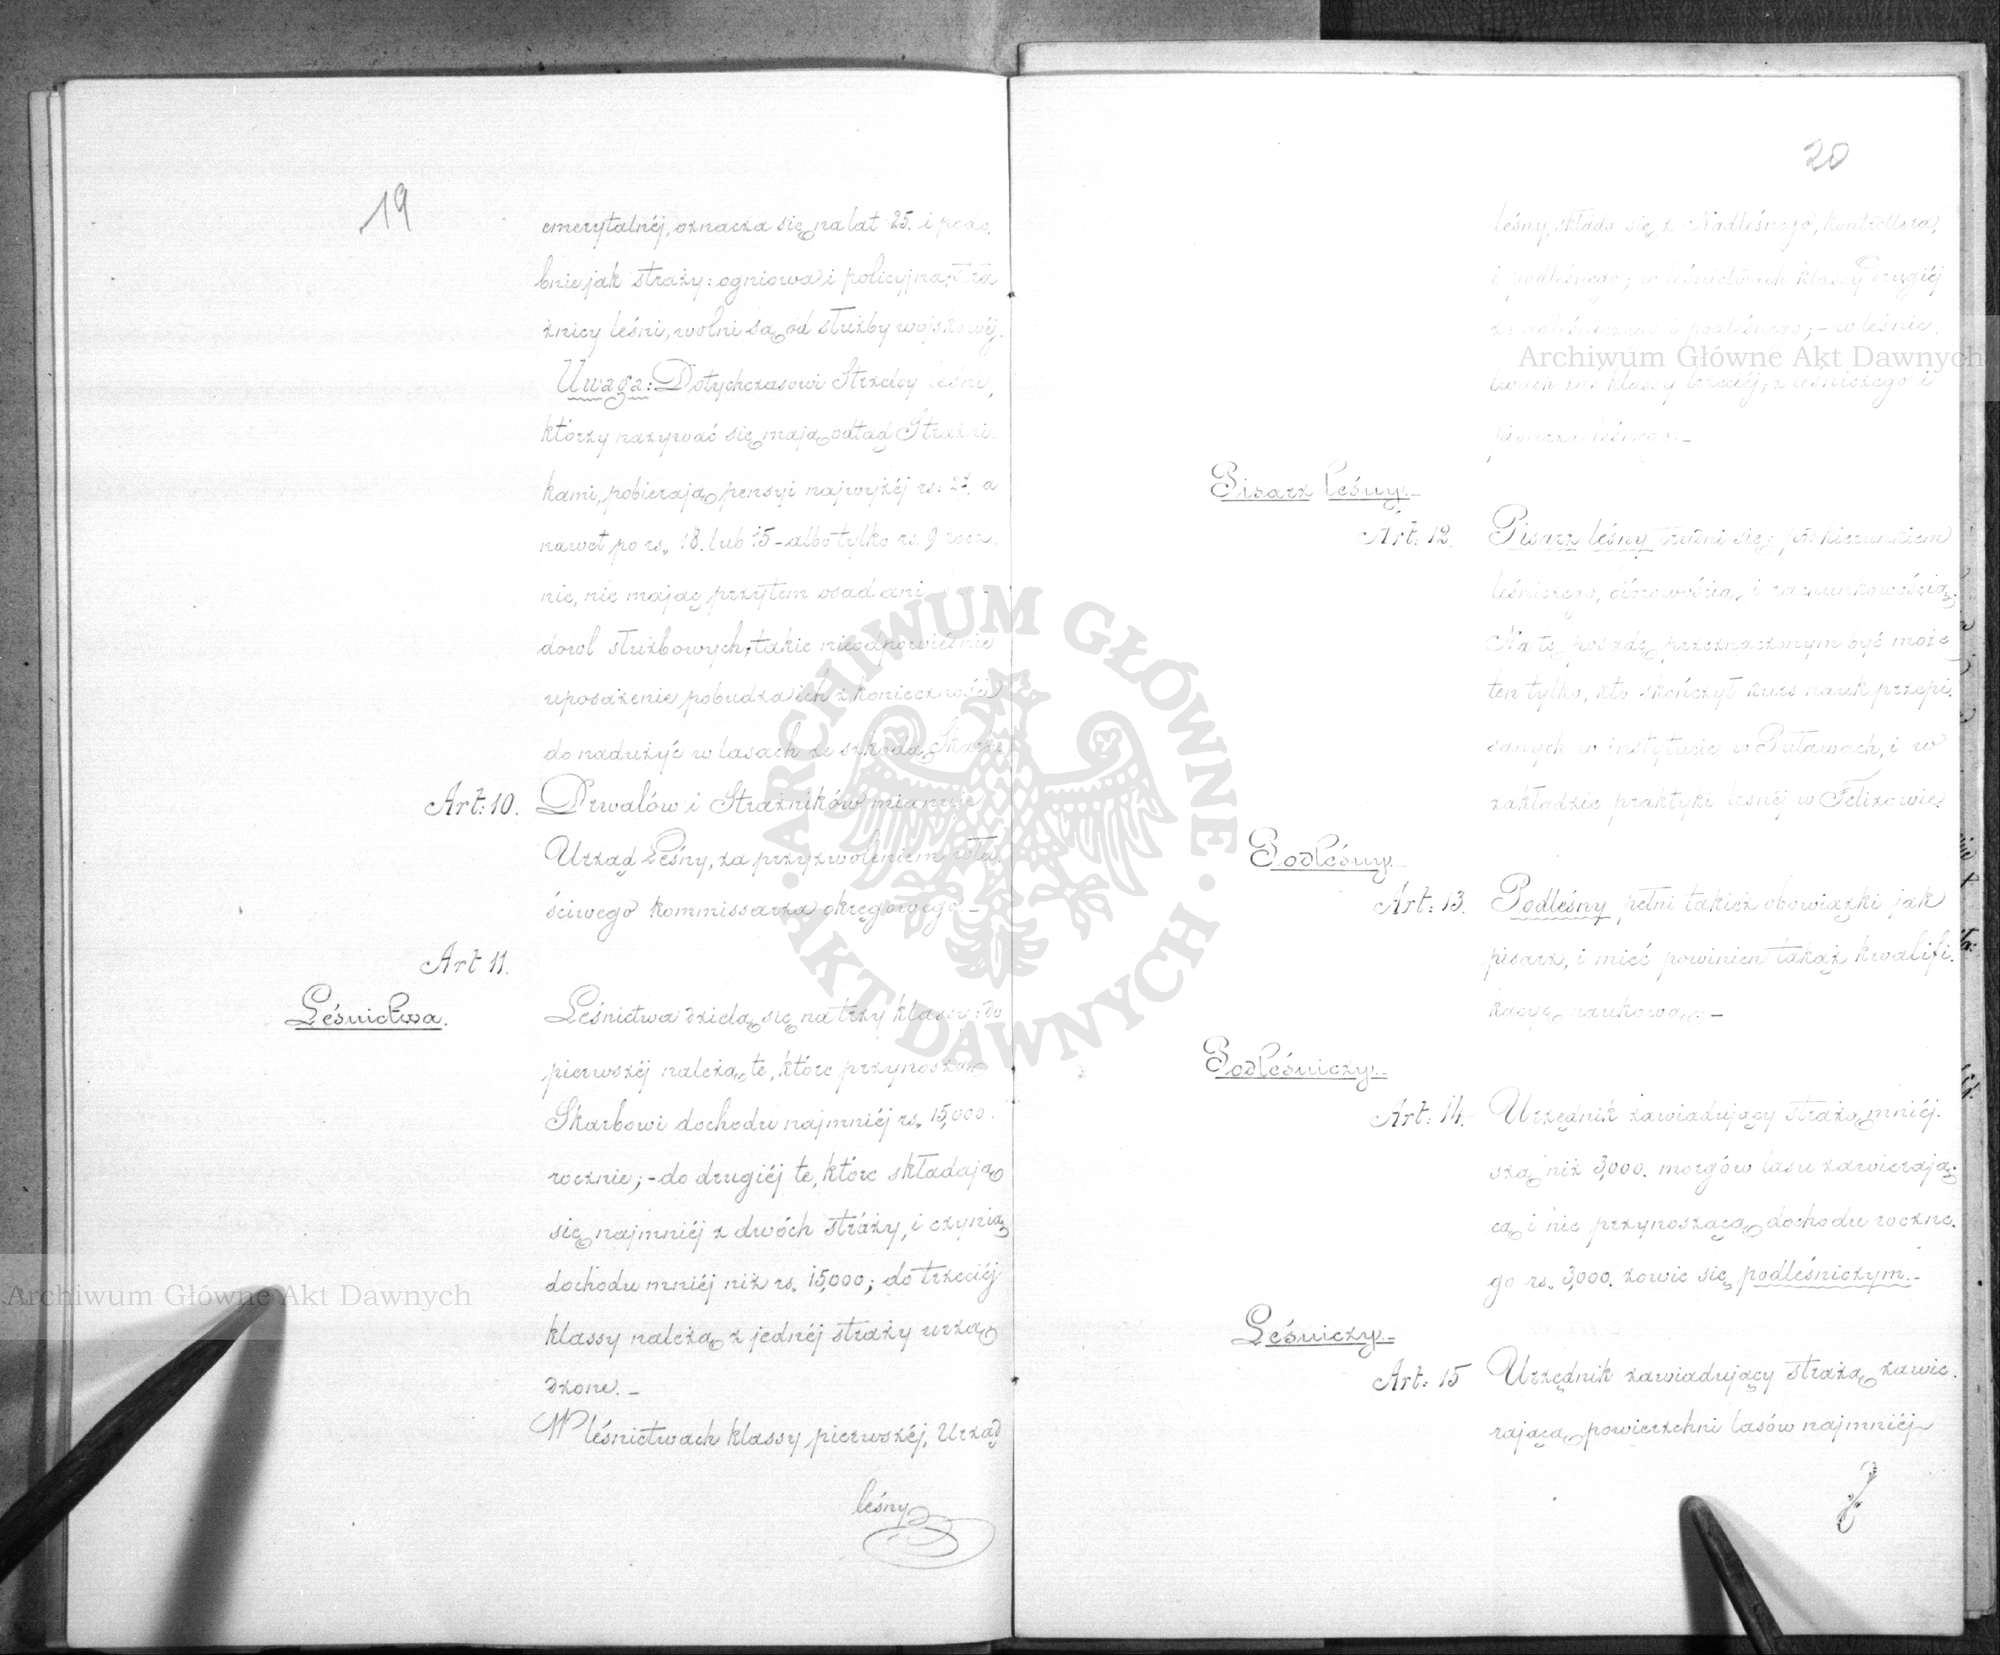 19
emerytalnéj, oznacza się na lat 25. i podo.
bnie jak straży: ogniowa i policyjna, stra
żnicy leśni, wolni są od służby wojskowéj.
Uwaga: Dotychczasowi Strzelcy leśni,
którzy nazywać się mają odtąd Strażni.
kami, pobierają pensyi najwyżéj rs: 27. a
nawet po rs. 18. lub 15 - albo tylko rs. 9 rocz.
nie, nie mając przytem osad ani
dowl służbowych; takie nieodpowiednie
uposażenie pobudza ich z konieczności
do nadużyć w lasach ze szkodą Skarbu
Art: 10. Drwalów i Strażników mianuje
Urząd Leśny, za przyzwoleniem wła.
ściwego kommissarza okręgowego. -
Art 11.
Leśnictwa. Leśnictwa dzielą się na trzy klassy: do
pierwszéj należą te, które przynoszą
Skarbowi dochodu najmniéj rs. 15,000.
rocznie; - do drugiéj te, które składają
się najmniéj z dwóch straży, i czynią
dochodu mniéj niż rs. 15,000; do trzeciéj
klassy należą z jednéj straży urzą
dzone. -
W leśnictwach klassy pierwszéj, Urząd
leśny
20
leśny, składa się z Nadleśnego, kontrollera,
i podleśnego; w leśnictwach klassy drugiéj
z nadleśniczego i podleśnego; - w leśnic.
twach zaś klassy trzeciéj, z leśniczego i
pisarza leśnego. -
Pisarz leśny. -
Art: 12. Pisarz leśny trudni się pod kierunkiem
leśniczego, biórowością, i rachunkowością.
Na tę posadę przeznaczonym być może
ten tylko, kto skończył kurs nauk przepi.
sanych w instytucie w Puławach, i w
zakładzie praktyki leśnéj w Felixowie.
Podleśny. -
Art: 13. Podleśny pełni takież obowiązki jak
pisarz, i mieć powinien takąż kwalifi.
kacyę naukową. -
Podleśniczy. -
Art: 14. Urzędnik zawiadujący strażą mniéj.
szą niż 3,000. morgów lasu zawierają.
cą i nie przynoszącą dochodu roczne.
go rs. 3,000. zowie się podleśniczym. -
Leśniczy. -
Art: 15 Urzędnik zawiadujący strażą zawie.
rającą powierzchni lasów najmniéj
Archiwum Główne Akt Dawnych
Archiwum Główne Akt Dawnych
ARCHIWUM GŁÓWNE AKT DAWNYCH